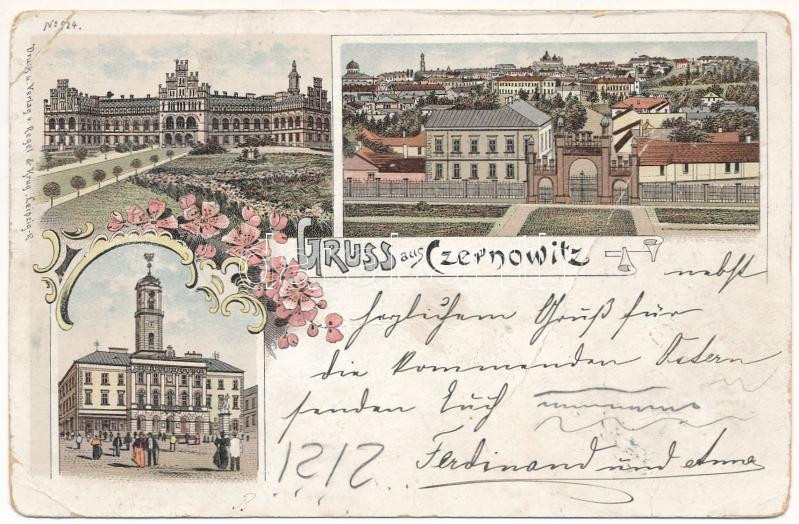 No 524.
Druck u. Verlag v. Regel & Krug, Leipzig-R.
GRUSS aus Czernowitz
nebst
herzlichem Gruß für
die kommenden Ostern
senden Euch
Ferdinand und Anna
12/2